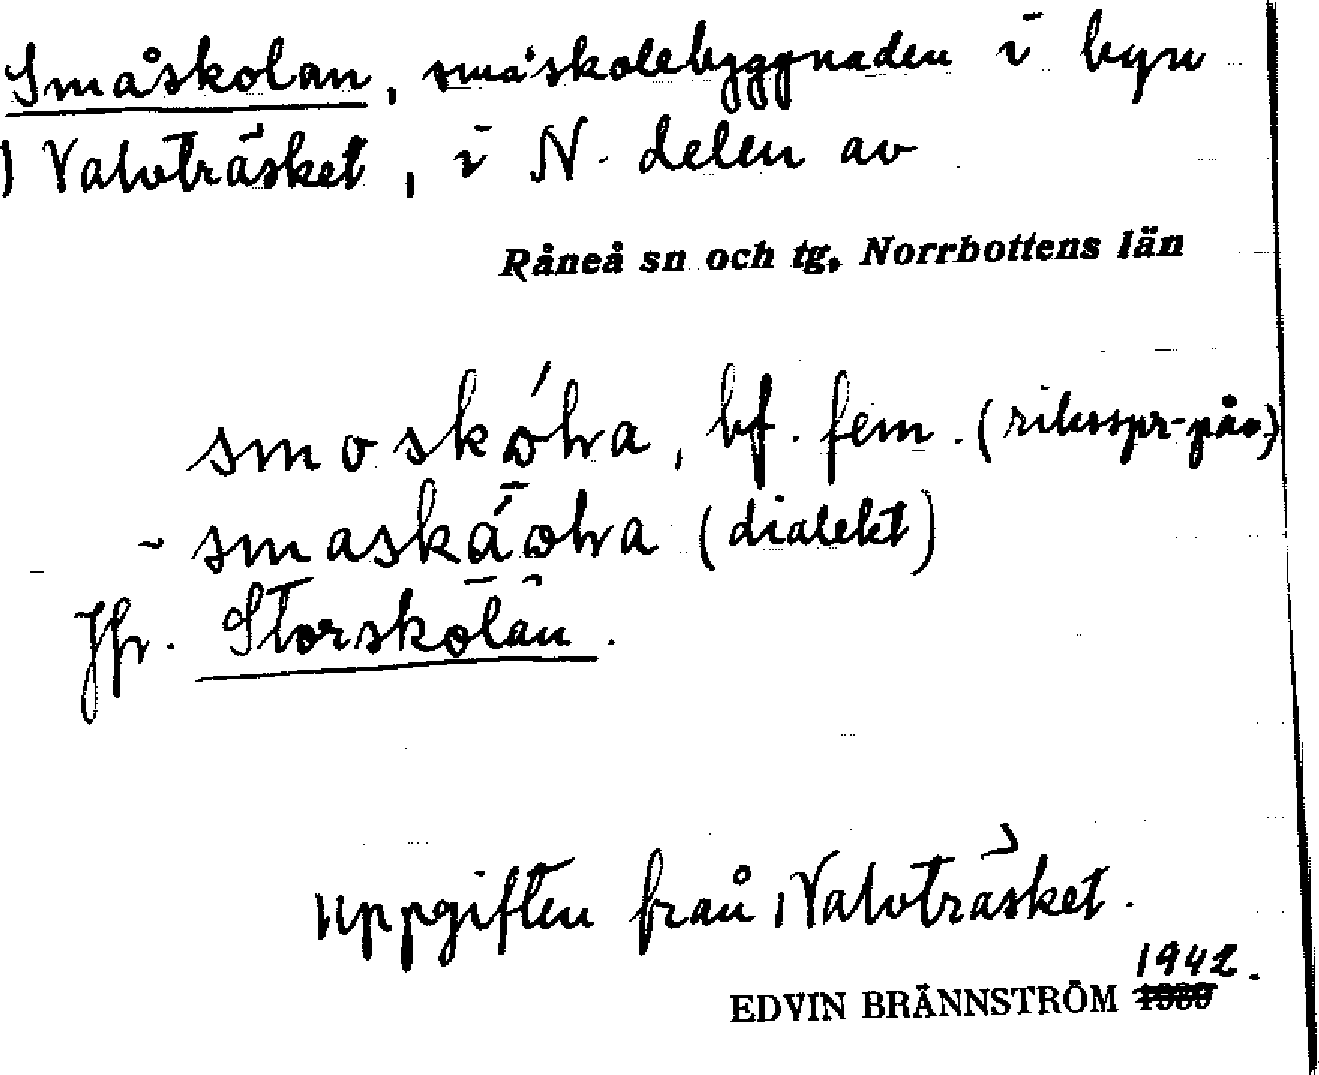 Småskolan, småskolebyggnaden i byn
Valvträsket, i N. delen av
Råneå sn och tg, Norrbottens län
bf. fem. (riksspr-påv.)
~ (dialekt)
Jfr. Storskolan.
Uppgiften från Valvträsket.
1942.
EDVIN BRÄNNSTRÖM 1930